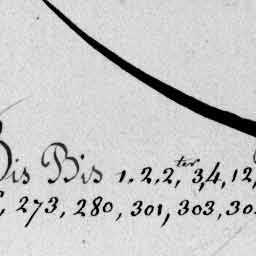 Bis Bis 1, 2, 2, ter 3, 4, 12,
, 273, 280, 301, 303, 30